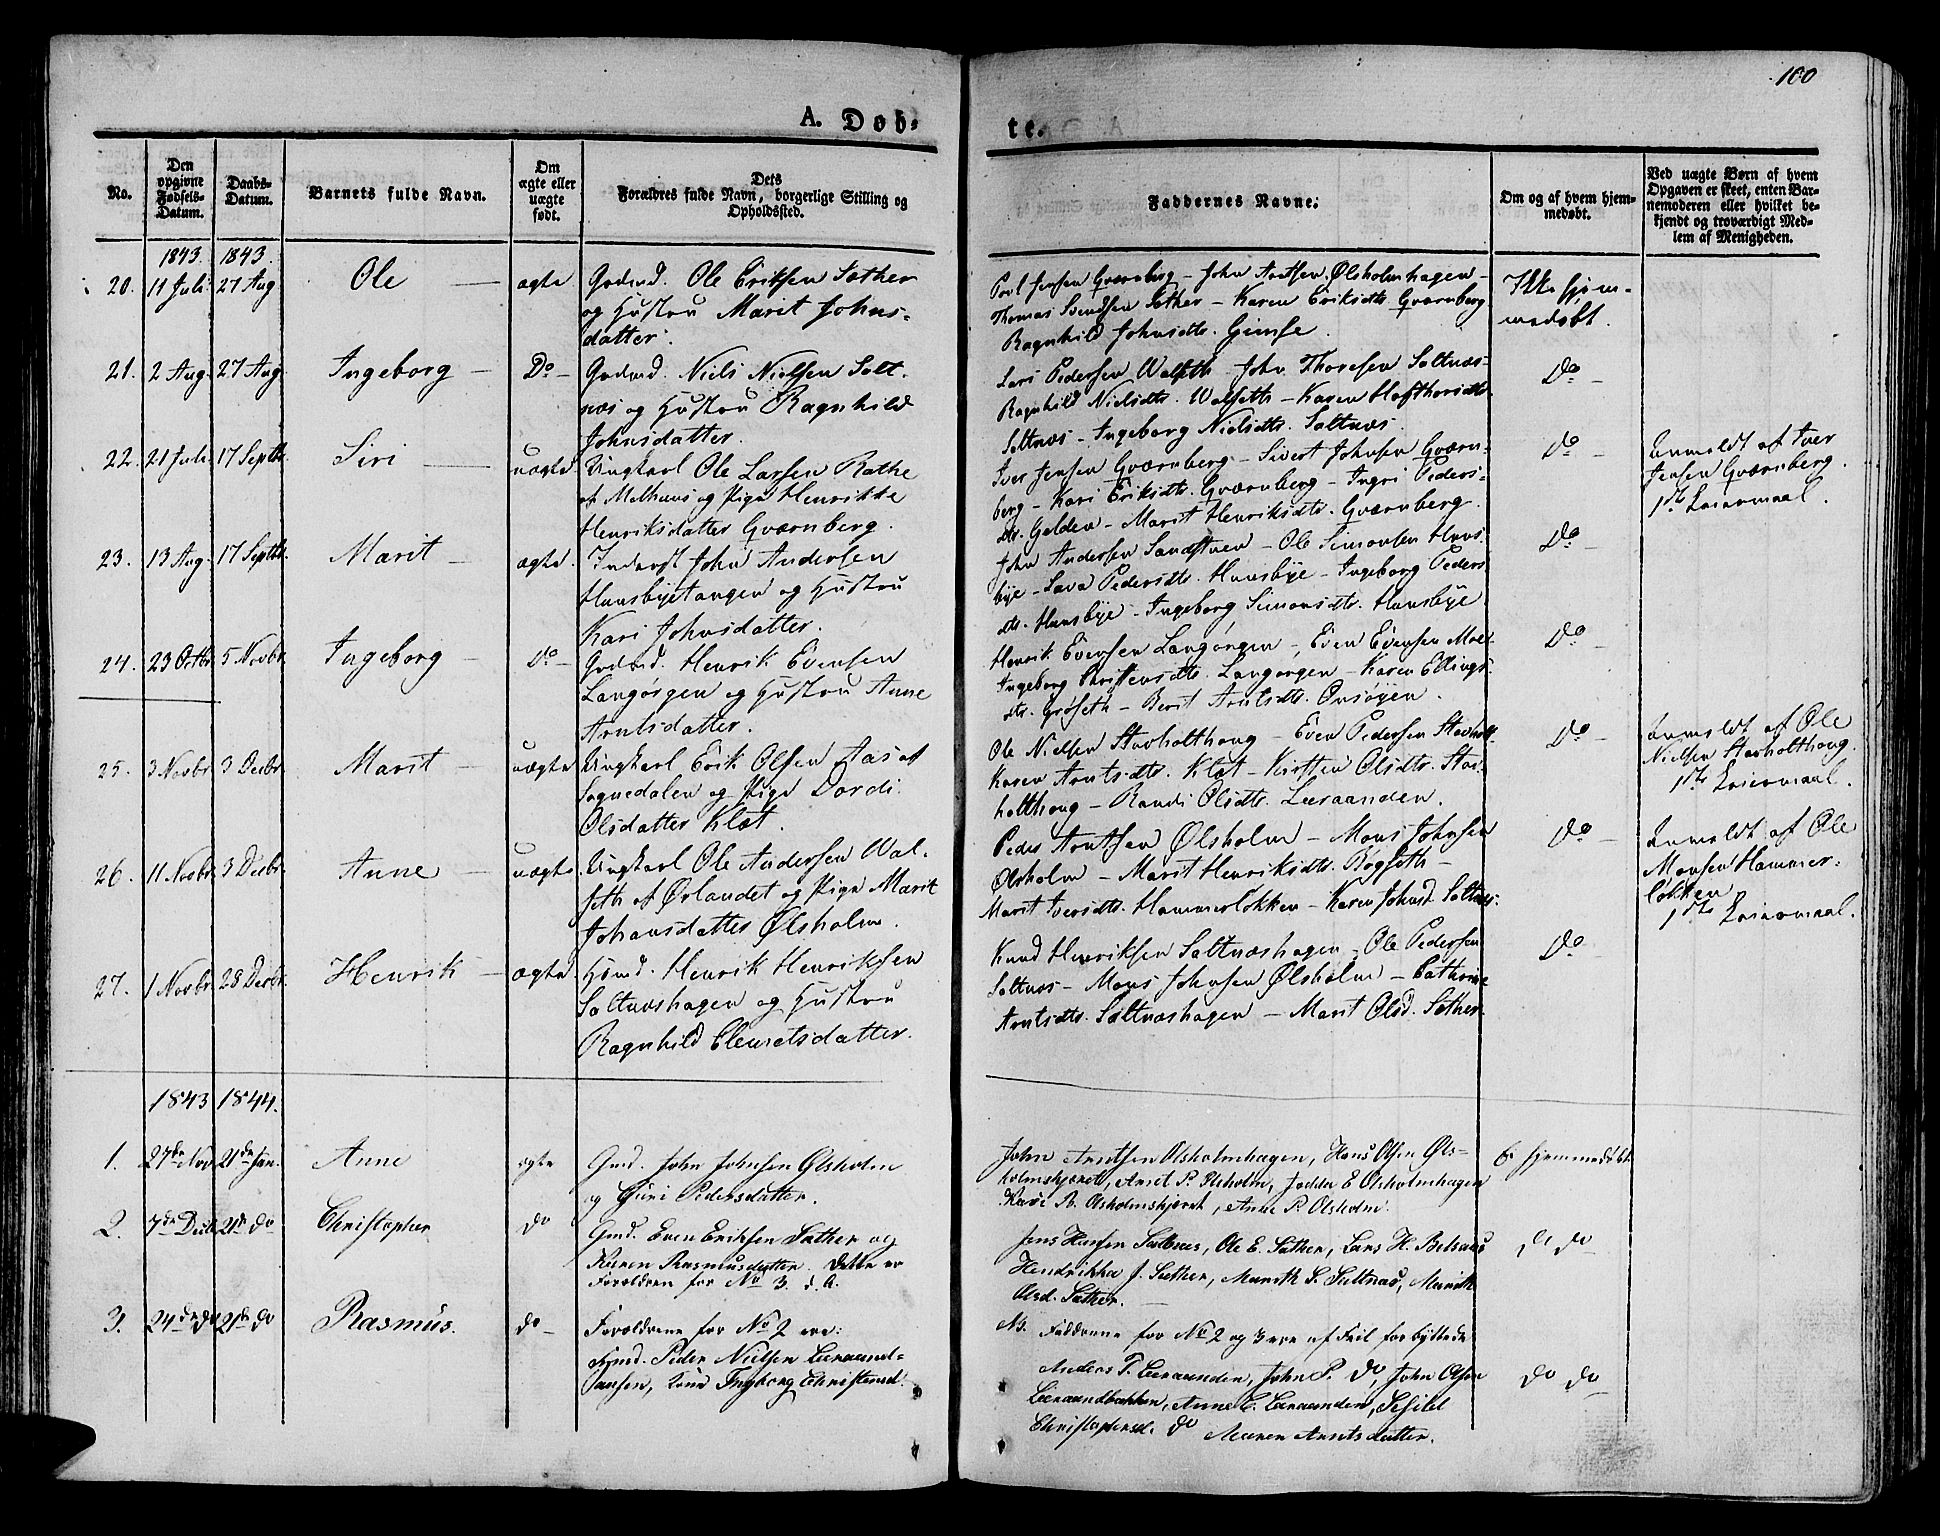 100
A. Døb-
te.
No.
Den opgivne Fødsels-Datum.
Daabs-Datum.
Barnets fulde Navn.
Om ægte eller uægte født.
Dets
Forældres fulde Navn, borgerlige Stilling og
Opholdssted.
Faddernes Navne.
Om og af hvem hjem-
medøbt.
Ved uægte Børn af hvem
Opgaven er skeet, enten Bar-
nemoderen eller hvilket be-
kjendt og troværdigt Med-
lem af Menigheden.
1843. 1843.
20. 11 Juli 27 Aug. Ole ægte Gadmd. Ole Eriksen Sæther
og Hustru Marit Johns-
datter.
Povl Jensen Gværnberg – John Arntsen Ølsholmhagen –
Thomas Svendsen Sæther – Karen Eriksdtr. Gværnberg
Ragnhild Johnsdtr. Gimse.
Ikke hjem-
medøbt.
21. 2 Aug. 27 Aug. Ingeborg Do Gadmd. Niels Nielsen Salt-
næs og Hustru Ragnhild
Johnsdatter.
Lars Pedersen Walseth – John Thoresen Saltnæs –
Ragnhild Nielsdtr. Walseth – Karen Hafthorsdtr.
Saltnæs – Ingeborg Nielsdtr. Saltnæs.
Do
22. 21 Juli 17 Septbr. Siri uægte Ungkarl Ole Larsen Rathe
af Melhuus og Pige Henrikke
Henriksdatter Gværnberg.
Iver Jensen Gværnberg – Sivert Johnsen Gværn-
berg – Kari Eriksdtr. Gværnberg – Ingri Peders-
dtr. Gylden – Marit Henriksdtr. Gværnberg.
Do
Anmeldt af Iver
Jensen Gværnberg.
1ste Leiermaal.
23. 13 Aug. 17 Septbr. Marit ægte. Inderst John Andersen
Huusbyetangen og Hustru
Kari Johnsdatter.
John Andersen Sandstuen – Ole Simonsen Huus-
bye – Sara Pedersdtr. Huusbye – Ingeborg Peders
dtr. Huusbye – Ingeborg Simonsdtr. Huusbye
Do
24. 23 Octbr. 5 Novbr. Ingeborg Do Gadmd. Henrik Evensen
Langørgen og Hustru Anne
Arntsdatter.
Henrik Evensen Langørgen – Even Evensen
Ingeborg Langørgen – Karen Ellings-
dtr. Grøseth – Berit Arntsdtr. Onsøyen.
Do
25. 3 Novbr. 3 Decbr. Marit uægte Ungkarl Erik Olsen Aas af
Soguedalen og Pige Dordi
Olsdatter Klæt.
Ole Nielsen Stavholthoug – Even Pedersen
Karen Arntsdtr. Klæt – Kirsten Olsdtr. Stav-
holthoug – Randi Olsdtr. Leeraanden.
Do
Anmeldt af Ole
Nielsen Stavholthoug.
1ste Leiermaal.
26. 11 Novbr. 3 Decbr. Anne uægte Ungkarl Ole Andersen Wal-
seth af Ørlandet og Pige Marit
Johansdatter Ølsholm.
Peder Arntsen Ølsholm – Mons Johnsen
Ølsholm – Marit Henriksdtr. Bogseth –
Marit Iversdtr. Hammerløkken – Karen Johnsd. Saltnæs.
Do
Anmeldt af Ole
Monsen Hammer-
løkken
1ste Leiermaal.
27. 1 Novbr. 28 Decbr. Henrik ægte. Hsmd. Henrik Henriksen
Saltnæshagen og Hustru
Ragnhild Clemetsdatter.
Knud Henriksen Saltnæshagen – Ole Pedersen
Saltnæs – Mons Johnsen Ølsholm – Cathrine
Arntsdtr. Saltnæshagen – Marit Olsd. Sæther.
Do
1843 1844.
1. 27de Nov. 21de Jan. Anne ægte Gmd. John Johnsen Ølsholm
og Guri Pedersdatter.
John Arntsen Ølsholmhagen, Hans Olsen Øls-
holmskjæret, Anet P. Ølsholm, E. Ølsholmhagen
Kari R. Ølsholmskjæret, Anne P. Ølsholm.
hjemmedøbt
2. 7de Decbr 21de do Christopher do Gmd. Even Eriksen Sæther og
Karen Rasmusdatter. Dette er
Forældrene for No 3. d. A.
Jens Hansen Saltnæs, Ole E. Sæther, Lars H.
Hendrikka J. Sæther, Marith S. Saltnæs, Marith
Olsd. Sæther.
do do
3. 24de do 21de do Rasmus. do Forældrene for No 2 ere:
Hsmd. Peder Nielsen Leeraand-
Ingborg Christensd.
Nb. Faddrene for No 2 og 3 ere af Feil forbyttede
Anders T. Leeraanden, John P. do, John Olsen
Leeraandbakken, Anne C. Leeraanden, Sesil
Christophersd. do Maren Arntsdatter.
do do